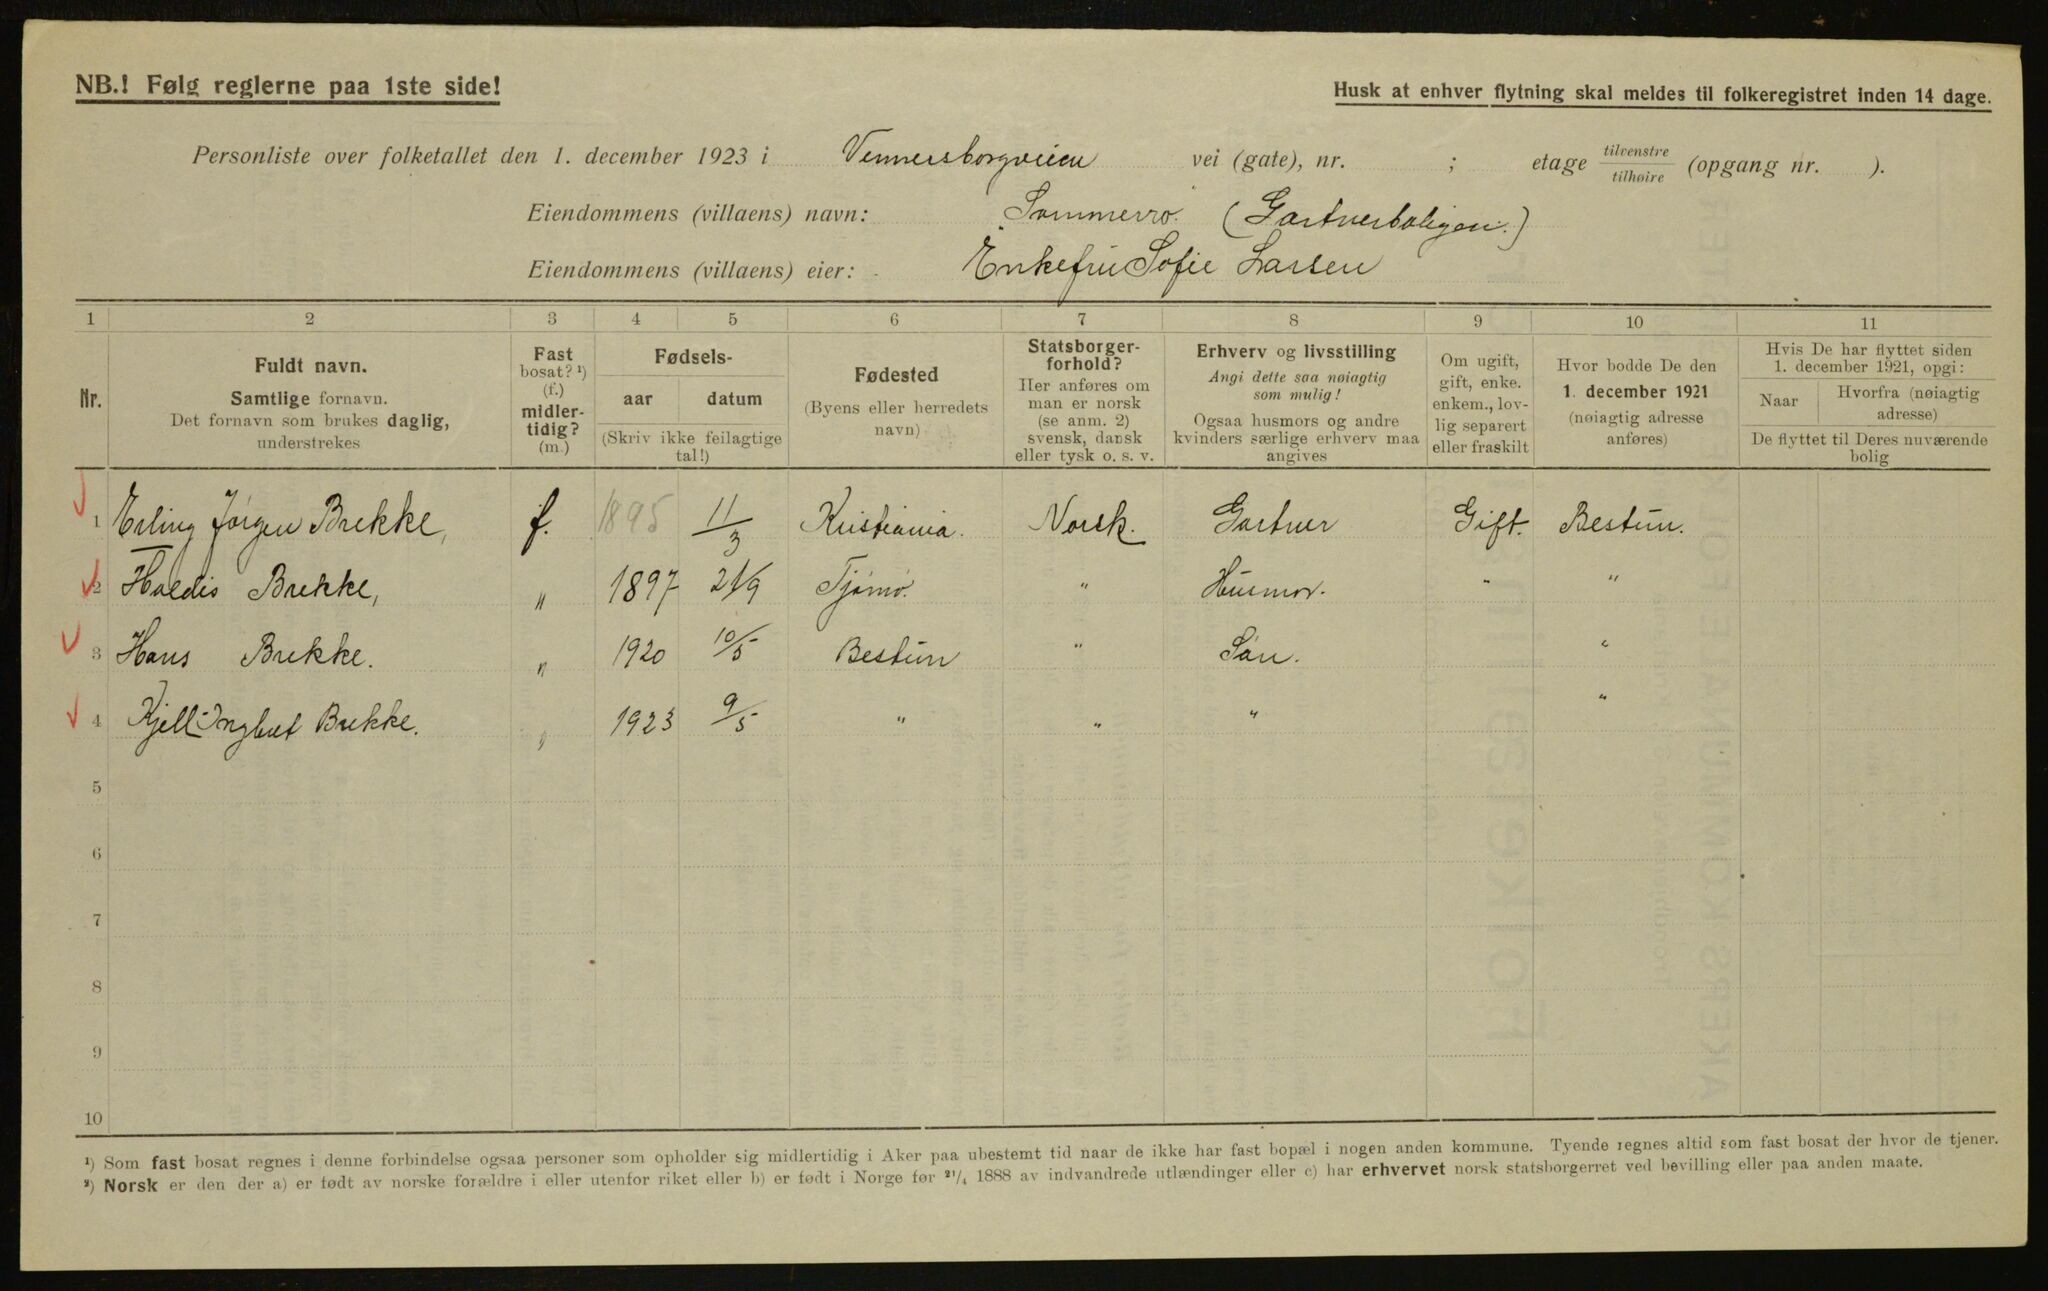 NB.! Følg reglerne paa 1ste side!
Husk at enhver flytning skal meldes til folkeregistret inden 14 dage.
Personliste over folketallet den 1. december 1923 i Vennersborgveien vei (gate), nr. ; etage tilvenstre/tilhøire (opgang nr. ).
Eiendommens (villaens) navn: Sommerro. (Gartnerboligen.)
Eiendommens (villaens) eier: Enkefru Sofie Larsen
1 2 3 4 5 6 7 8 9 10 11
Nr.
Fuldt navn.
Samtlige fornavn.
Det fornavn som brukes daglig,
understrekes
Fast
bosat? ¹)
(f.)
midler-
tidig?
(m.)
Fødsels-
aar datum
(Skriv ikke feilagtige
tal!)
Fødested
(Byens eller herredets
navn)
Statsborger-
forhold?
Her anføres om
man er norsk
(se anm. 2)
svensk, dansk
eller tysk o. s. v.
Erhverv og livsstilling
Angi dette saa nøiagtig
som mulig!
Ogsaa husmors og andre
kvinders særlige erhverv maa
angives
Om ugift,
gift, enke.
enkem., lov-
lig separert
eller fraskilt
Hvor bodde De den
1. december 1921
(nøiagtig adresse
anføres)
Hvis De har flyttet siden
1. december 1921, opgi:
Naar
Hvorfra (nøiagtig
adresse)
De flyttet til Deres nuværende
bolig
1 Erling Jørgen Brekke, f. 1895 11/3 Kristiania. Norsk. Gartner Gift. Bestun.
2 Haldis Brekke, " 1897 21/9 Tjømø. " Husmor. " "
3 Hans Brekke. " 1920 10/5 Bestun " Søn. "
4 Kjell Brekke. " 1923 9/5 " " " "
5
6
7
8
9
10
¹) Som fast bosat regnes i denne forbindelse ogsaa personer som opholder sig midlertidig i Aker paa ubestemt tid naar de ikke har fast bopæl i nogen anden kommune. Tyende regnes altid som fast bosat der hvor de tjener.
²) Norsk er den der a) er født av norske forældre i eller utenfor riket eller b) er født i Norge før ²¹/₄ 1888 av indvandrede utlændinger eller c) har erhvervet norsk statsborgerret ved bevilling eller paa anden maate.